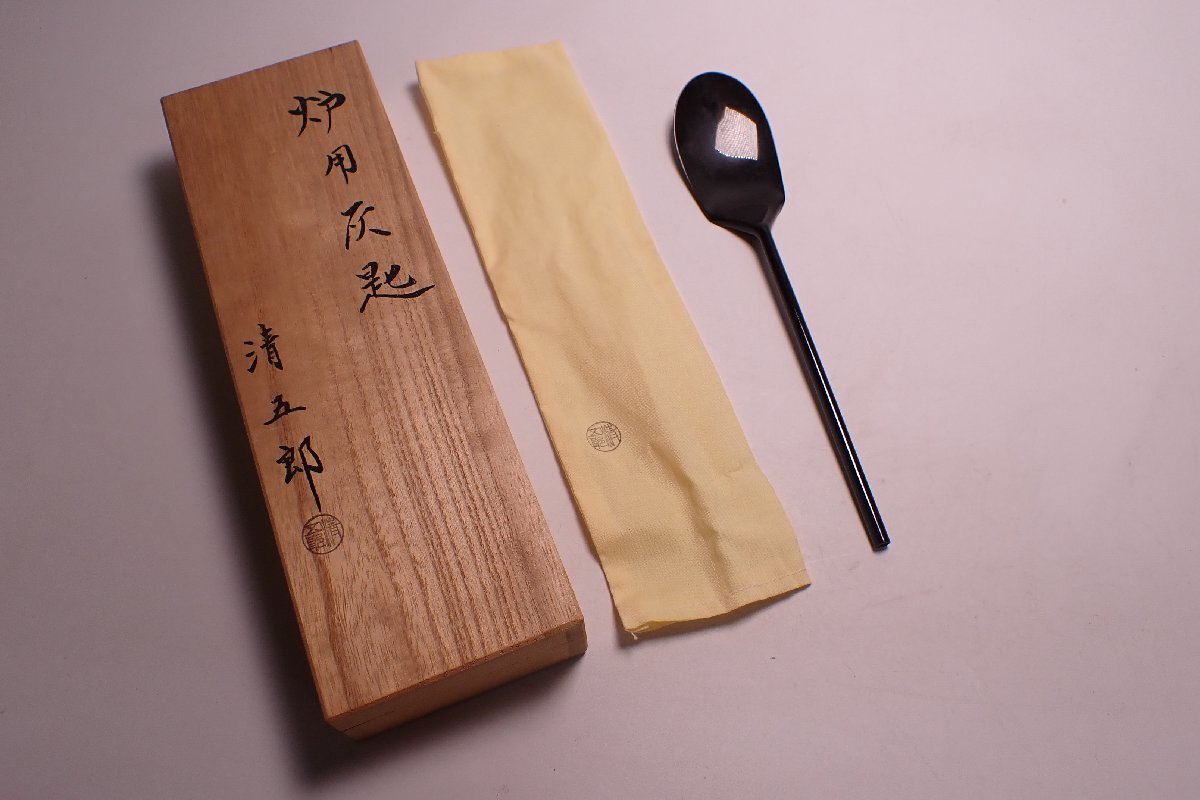 炉用灰匙
清五郎